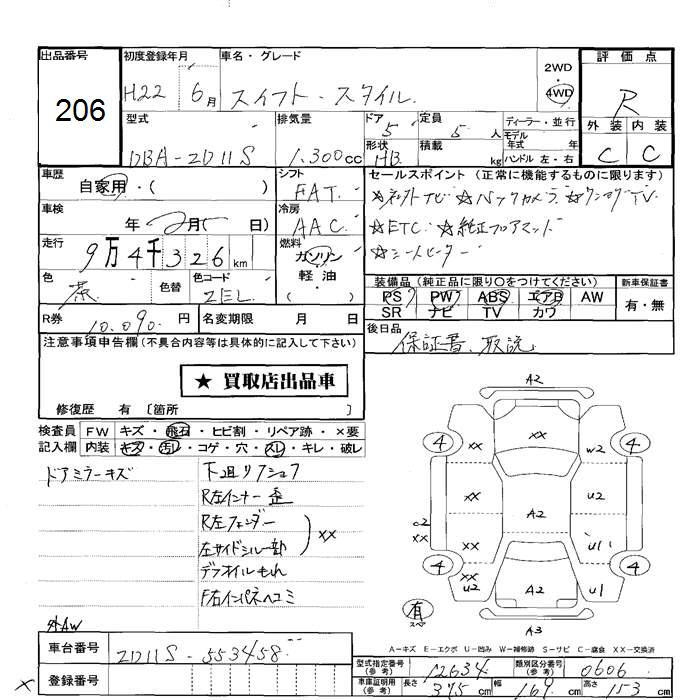 出品番号
206
初度登録年月
H22 6月
車名・グレード
スイフト・スタイル
2WD
4WD
評価点
R
外装 内装
C C
型式
DBA-ZD11S
排気量
1.300cc
ドア 5
形状 HB
定員 5人
積載 kg
ディーラー・並行
モデル年式 年
ハンドル 左・右
車歴
自家用・( )
車検
年 月( 日)
走行
9万4千326km
色
茶
色替
色コード
ZEL
シフト
FAT
冷房
AAC
燃料
ガソリン
軽・油
( )
R券
10.090円
名変期限 月 日
セールスポイント(正常に機能するものに限ります)
☆ナビ ☆バックカメラ ☆ワンセグTV
☆ETC ☆純正フロアマット
☆シートヒーター
装備品(純正品に限り○をつけてください)
PS PW ABS エアB AW
SR ナビ TV カワ
新車保証書
有・無
後日品
保証書、取説
注意事項申告欄(不具合内容等は具体的に記入して下さい)
★ 買取店出品車
修復歴 有〔箇所 〕
検査員記入欄
FW キズ・飛石・ヒビ割・リペア跡・×要
内装 キズ・汚レ・コゲ・穴・スレ・キレ・破レ
ドアミラーキズ
下廻リフショク
R左インナー歪
R左フェンダー
左サイドシル一部
XX
デフオイルもれ
F右インパネヘコミ
外AW
A2
4 XX XX W2 4
XX A2 U2
C2
XX XX U1
4 XX U2 A2 U1 4
有
スペ
A3
A-キズ E-エクボ U-凹み W-補修跡 S-サビ C-腐食 XX-交換済
車台番号
ZD11S-553458
登録番号
×
型式指定番号(参考)
12634
類別区分番号(参考)
0606
車庫証明用(参考)
長さ 375cm
幅 169cm
高さ 153cm